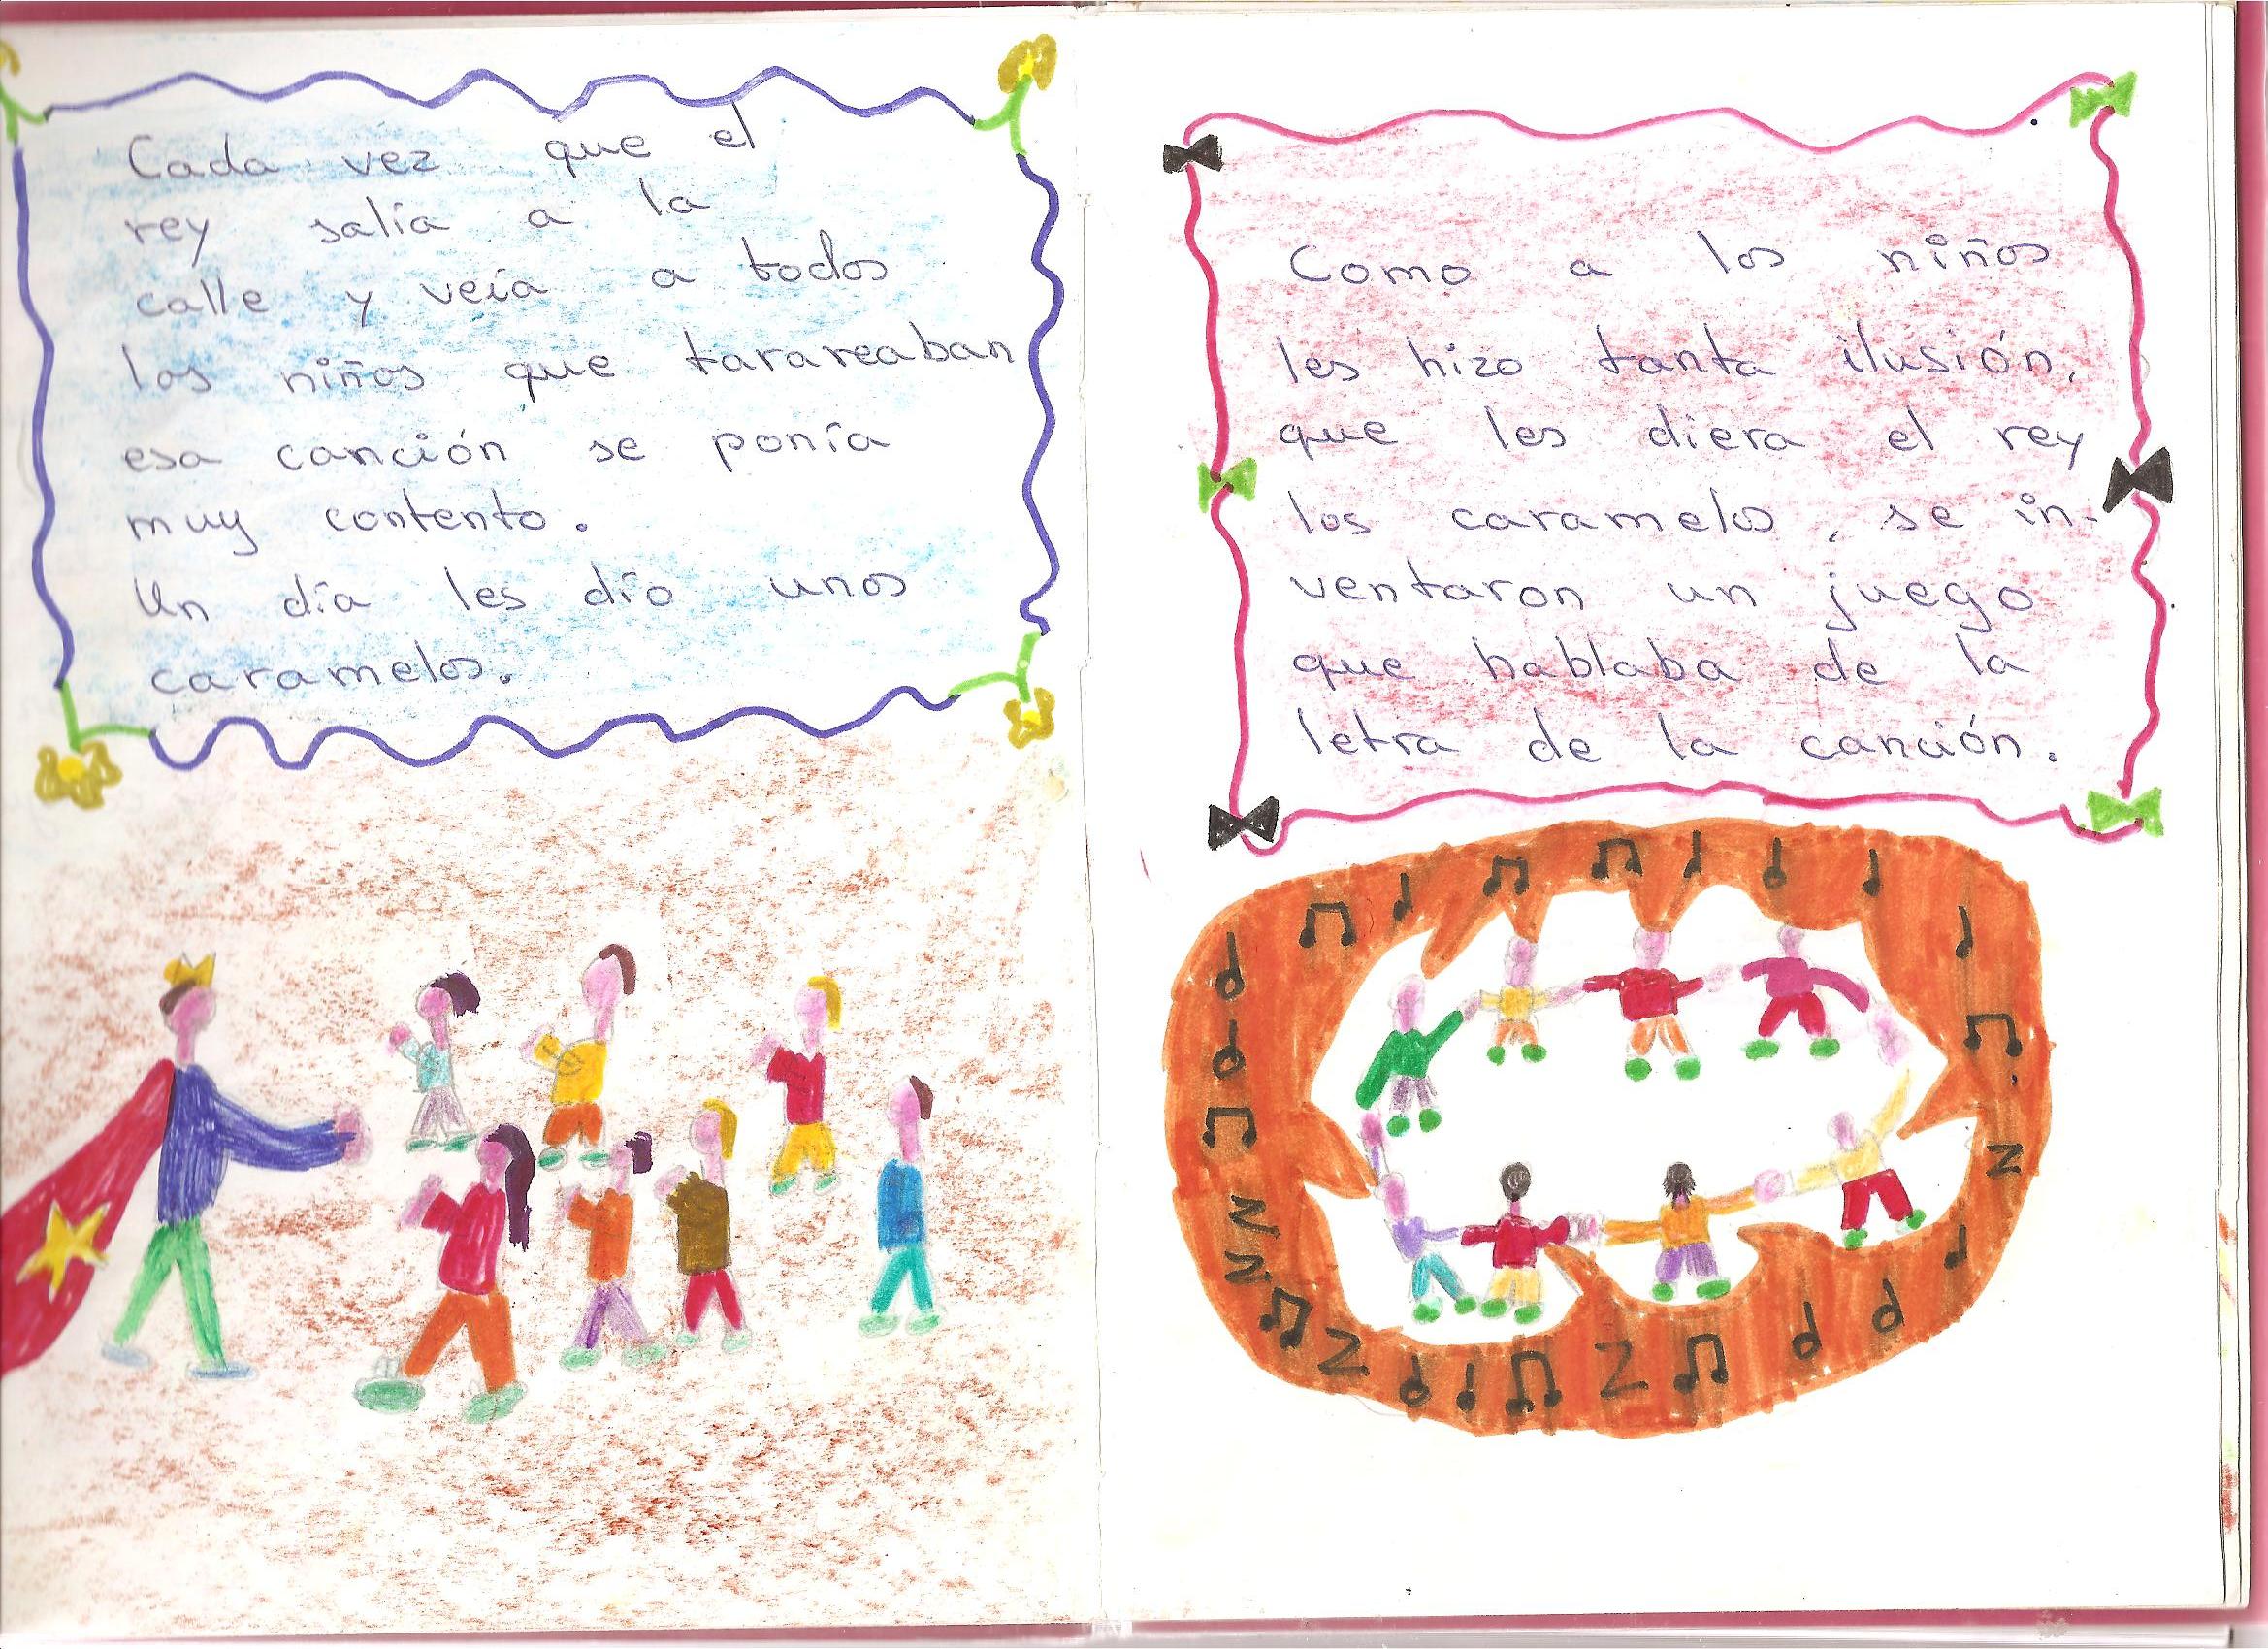 Cada vez que el
rey salía a la
calle y veía a todos
los niños que tarareaban
esa canción se ponía
muy contento.
Un día les dío unos
caramelos.
Como a los niños
les hizo tanta ilusión,
que les diera el rey
los caramelos, se in-
ventaron un juego
que hablaba de la
letra de la canción.